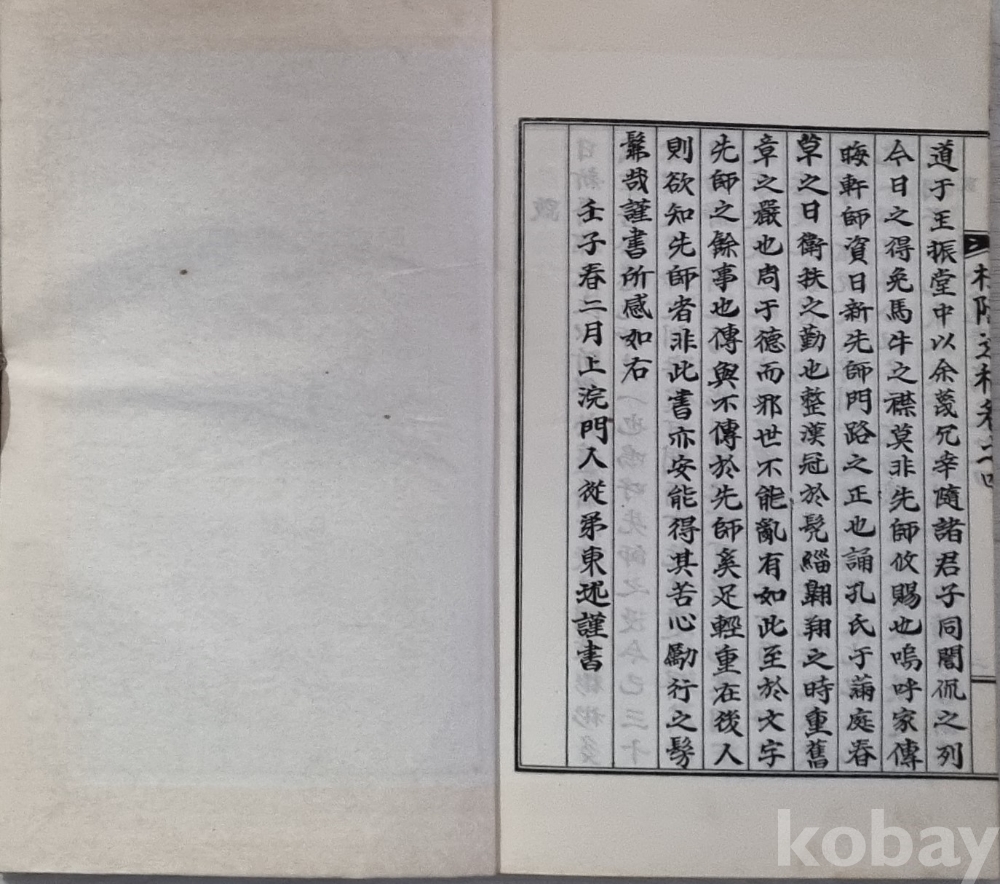 道于王振堂中以余蔑冗幸隨諸君子同誾侃之列
今日之得免馬牛之襟莫非先師攸賜也嗚呼家傳
晦軒師資日新先師門路之正也誦孔氏于滿庭春
草之日衛扶之勤也整漢冠於髡緇翺翔之時重舊
章之嚴也周于德而邪世不能亂有如此至於文字
先師之餘事也傳與不傳於先師奚足輕重在後人
則欲知先師者非此書亦安能得其苦心勵行之髣
髴哉謹書所感如右
壬子春二月上浣門人從弟東述謹書
kobay